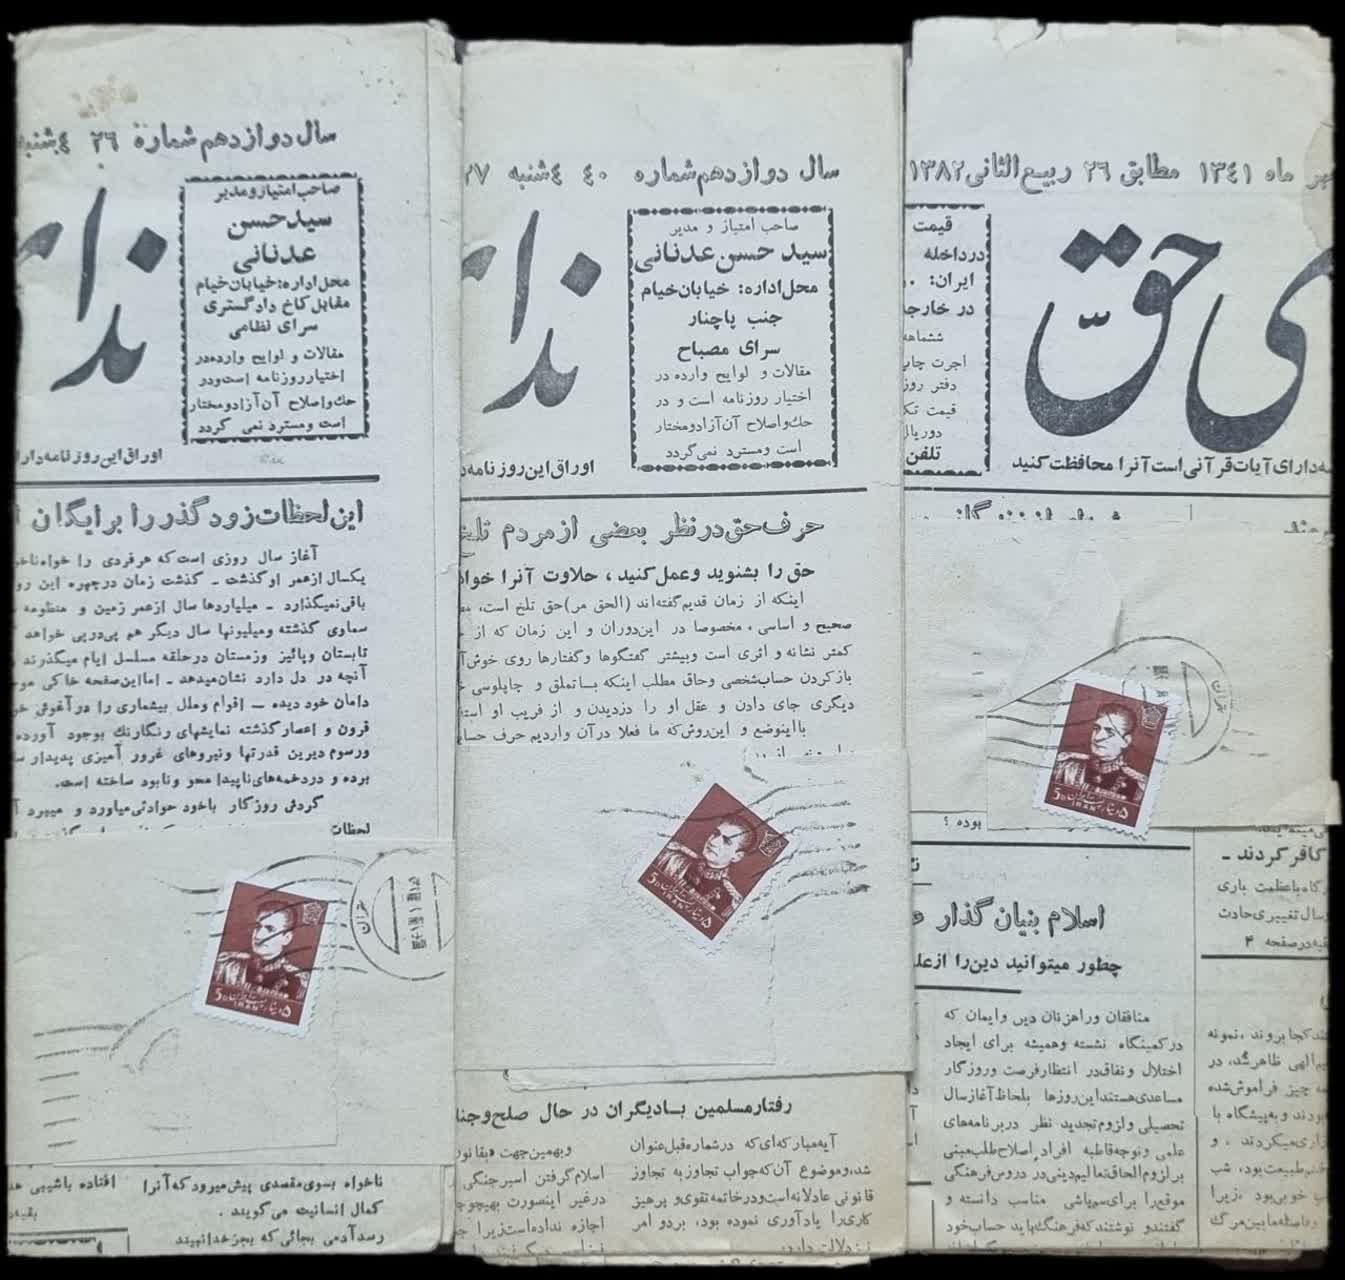 سال دوازدهم شماره ۲۶ ۴شنبه
صاحب امتیاز و مدیر
سید حسن
عدنانی
محل اداره: خیابان خیام
مقابل کاخ دادگستری
سرای نظامی
مقالات و لوایح وارده در
اختیار روزنامه است و در
حک و اصلاح آن آزاد و مختار
است و مسترد نمی گردد
ندای
اوراق این روزنامه دارا
این لحظات زود گذر را برایگان
آغاز سال روزی است که هر فردی را خواه ناخو
یکسال از عمر او گذشت ـ گذشت زمان در چهره این رو
باقی نمیگذارد ـ میلیاردها سال از عمر زمین و منظومه
سماوی گذشته و میلیونها سال دیگر هم پی در پی خواهد
تابستان و پائیز و زمستان در حلقه مسلسل ایام میگذرند
آنچه در دل دارد نشان میدهد ـ اما این صفحه خاکی مو
دامان خود دیده ـ اقوام و ملل بیشماری را در آغوش خو
قرون و اعصار گذشته نمایشهای رنگارنگ بوجود آورده
ورسوم دیرین قدرتها و نیروهای غرور آمیزی پدیدار سا
برده و در دخمه های ناپیدا محو و نابود ساخته است.
گردش روزگار باخود حوادثی میاورد و میبرد آ
لحظات
5D
IRAN
۵ دینار
تهران
ناخواه بسوی مقصدی پیش میرود که آنرا
کمال انسانیت می گویند.
رسد آدمی بجائی که بجز خدا نبیند
افتاده باشیبی
بقیه
سال دوازدهم شماره ۴۰ ۴شنبه ۲۷
صاحب امتیاز و مدیر
سید حسن عدنانی
محل اداره: خیابان خیام
جنب پاچنار
سرای مصباح
مقالات و لوایح وارده در
اختیار روزنامه است و در
حک و اصلاح آن آزاد و مختار
است و مسترد نمی گردد
ندا
اوراق این روزنامه د
حرف حق در نظر بعضی از مردم تلخ
حق را بشنوید و عمل کنید، حلاوت آنرا خوا
اینکه از زمان قدیم گفته اند (الحق مر) حق تلخ است،
صحیح و اساسی، مخصوصا در این دوران و این زمان که از
کمتر نشانه و اثری است و بیشتر گفتگوها و گفتارها روی خوش آ
باز کردن حساب شخصی و حاق مطلب اینکه با تملق و چاپلوسی
دیگری جای دادن و عقل او را دزدیدن و از فریب او استفا
با این وضع و این روش که ما فعلا در آن واردیم حرف حسا
5D
IRAN
۵ دینار
رفتار مسلمین با دیگران در حال صلح و جن
آیه مبارکه ای که در شماره قبل عنوان
شد، و موضوع آن که جواب تجاوز به تجاوز
قانونی عادلانه است و در خاتمه تقوی و پرهیز
کاری را یادآوری نموده بود، بر دو امر
نیز دلالت دارد.
و بهمین جهت «بقانو
اسلام گرفتن اسیر جنگی
در غیر اینصورت بهیچوجه
اجازه نداده است زیرا
هر ماه ۱۳۴۱ مطابق ۲۶ ربیع الثانی ۱۳۸۲
ی حق
قیمت
در داخله
ایران:
در خارجه
ششماهه
اجرت چاپ
دفتر روز
قیمت تک
دو ریال
تلفن
ه دارای آیات قرآنی است آنرا محافظت کنید
تهران
5D
IRAN
۵ دینار
بوده ؟
اسلام بنیان گذار
چطور میتوانید دین را از عل
منافقان و راهزنان دین و ایمان که
در کمینگاه نشسته و همیشه برای ایجاد
اختلال و نفاق در انتظار فرصت و روزگار
مساعدی هستند این روزها بلحاظ آغاز سال
تحصیلی و لزوم تجدید نظر در برنامه های
علمی و توجه قاطبه افراد اصلاح طلب مبنی
بر لزوم الحاق تعالیم دینی در دروس فرهنگی
موقع را برای سم پاشی مناسب دانسته و
گفتند و نوشتند که فرهنگ باید حساب خود
کافر کردند ـ
رگاه با عظمت باری
سال تغییری حادث
قیه در صفحه ۴
ند کجا بروند، نمونه
م الهی ظاهر شد، در
چیز فراموش شده
ودند و به پیشگاه با
اری میکردند، و
بود، شب
خوبی بود، زیرا